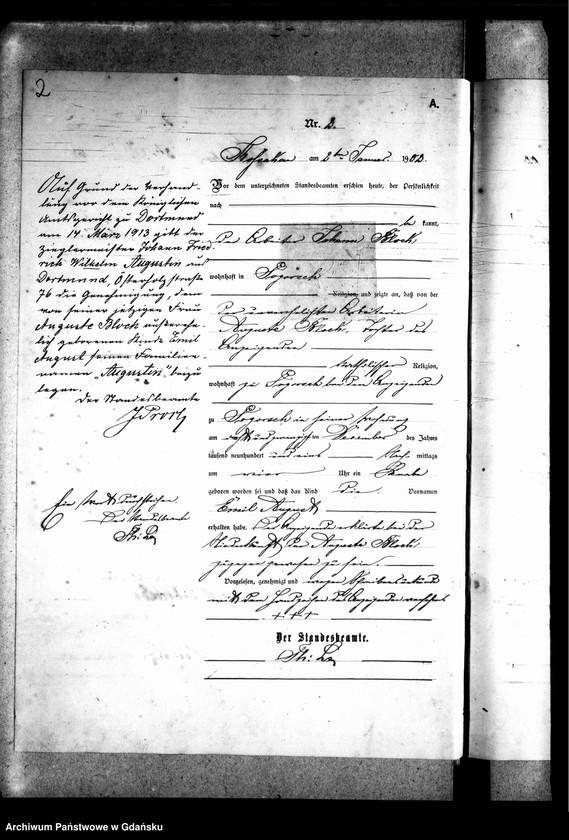 2
A.
Nr. 2.
am 2ten Januar 1902.
Vor dem unterzeichneten Standesbeamten erschien heute, der Persönlichkeit
nach
be kannt,
der Arbeiter Johann Block
wohnhaft in Pogorsch
Religion, und zeigte an, daß von der
der unverehelichten Arbeiterin
Auguste Block, Tochter des
Anzeigenden
katholischer Religion,
wohnhaft zu Pogorsch bei dem Anzeigenden
zu Pogorsch in seiner Wohnung
am acht und zwanzigsten December des Jahres
tausend neunhundert und eins Nach mittags
um vier Uhr ein Knabe
geboren worden sei und daß das Kind die Vornamen
Emil August
erhalten habe. Der Anzeigende erklärte bei der
Niederkunft der Auguste Block
zugegen gewesen zu sein.
Vorgelesen, genehmigt und wegen Schreibensunkunde
mit dem Handzeichen des Anzeigenden versehen
+ + +
Der Standesbeamte.
Auf Grund der Verhand-
lung vor dem Königlichen
Amtsgericht zu Dortmund
am 14. März 1913 gibt der
Zieglermeister Johann Fried
rich Wilhelm Augustin aus
Dortmund, Österholzstraße
76 die Genehmigung, dem
von seiner jetzigen Frau
Auguste Block außerehe-
lich geborenen Kinde Emil
August seinen Familien-
namen "Augustin" beizu
legen.
Der Standesbeamte
Ein Wort durchstrichen.
Der Standesbeamte
Archiwum Państwowe w Gdańsku